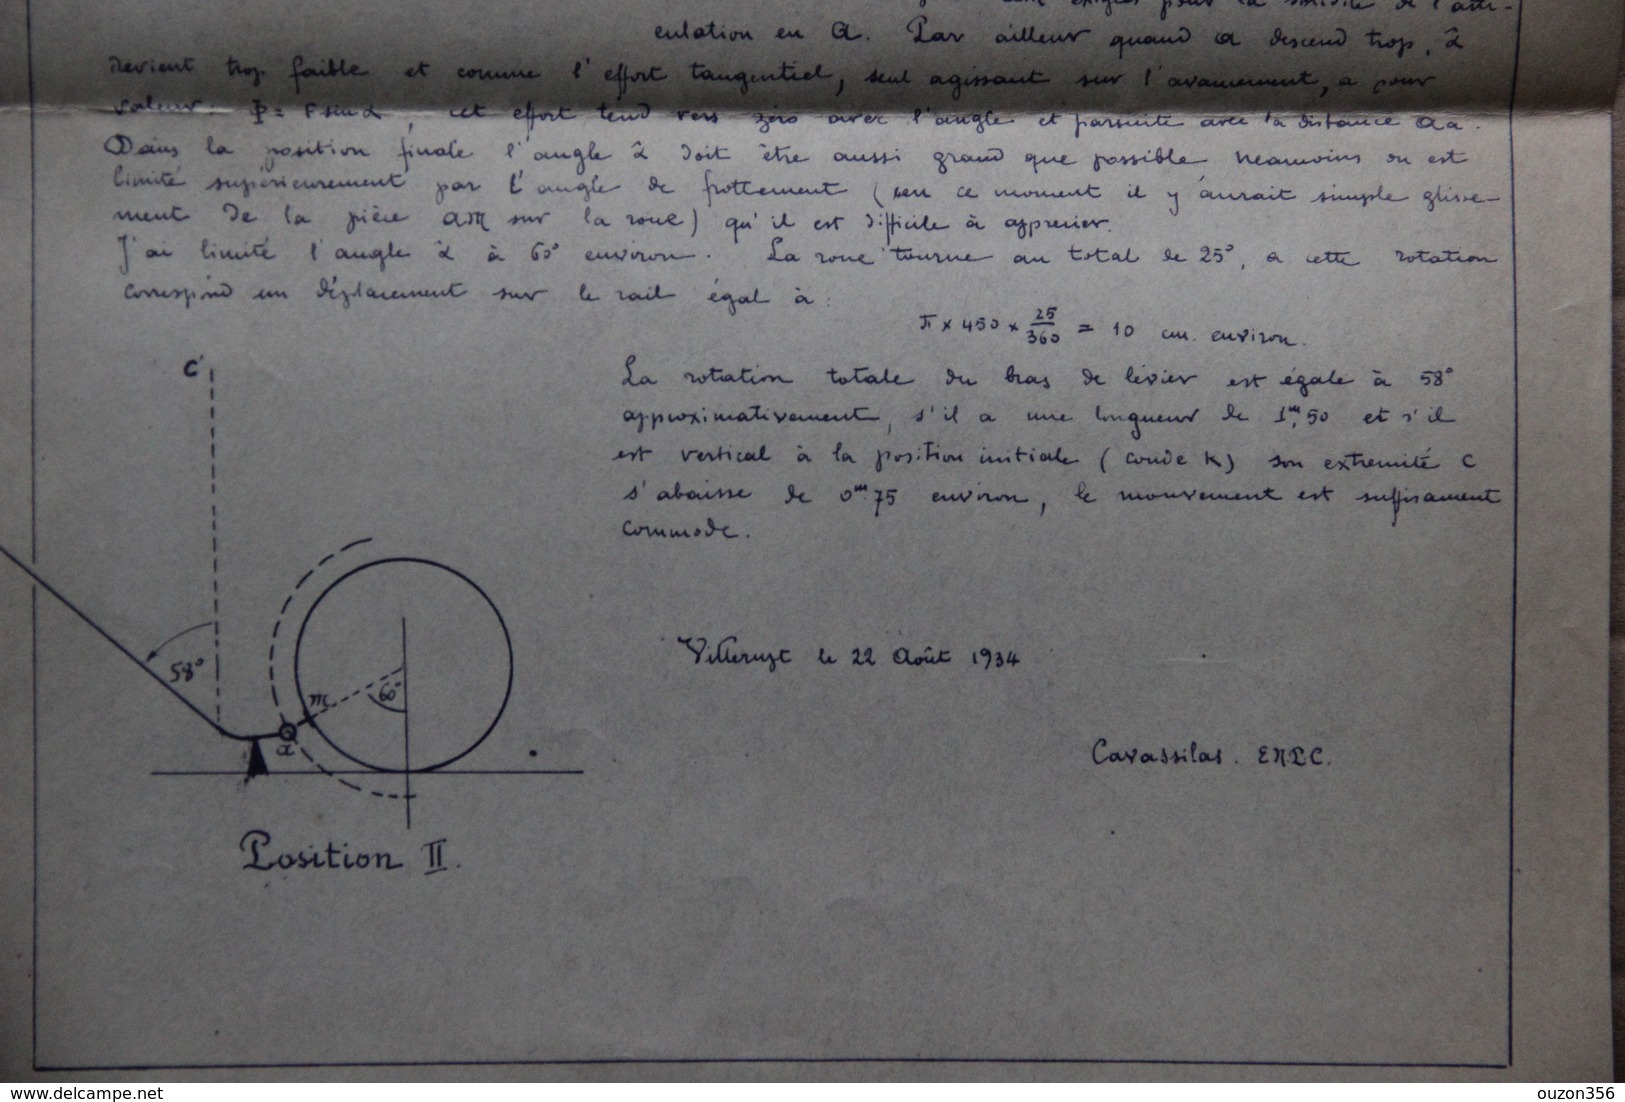 pour la solidité de l'arti-
culation en A. Par ailleur quand a descend trop, α
devient trop faible et comme l'effort tangentiel, seul agissant sur l'avancement, a pour
valeur: Φ = F sin α, cet effort tend vers zéro avec l'angle et parsuite avec la distance Aa.
Dans la position finale l'angle α doit être aussi grand que possible neamoins on est
limité supérieurement par l'angle de frottement (en ce moment il y aurait simple glisse-
ment de la pièce am sur la roue) qu'il est difficile à apprecier.
J'ai limité l'angle α à 60° environ. La roue tourne au total de 25°, a cette rotation
correspond un déplacement sur le rail égal à:
π × 450 × 25/360 = 10 cm. environ.
La rotation totale du bras de levier est égale à 58°
approximativement, s'il a une longueur de 1m,50 et s'il
est vertical à la position initiale (coude K) son extremité C
s'abaisse de 0m.75 environ, le mouvement est suffisament
commode.
C
58°
m
60°
a
Position II.
Villerupt le 22 Août 1934
Cavassilas. ENPC.
https://www.delcampe.net
ouzon356